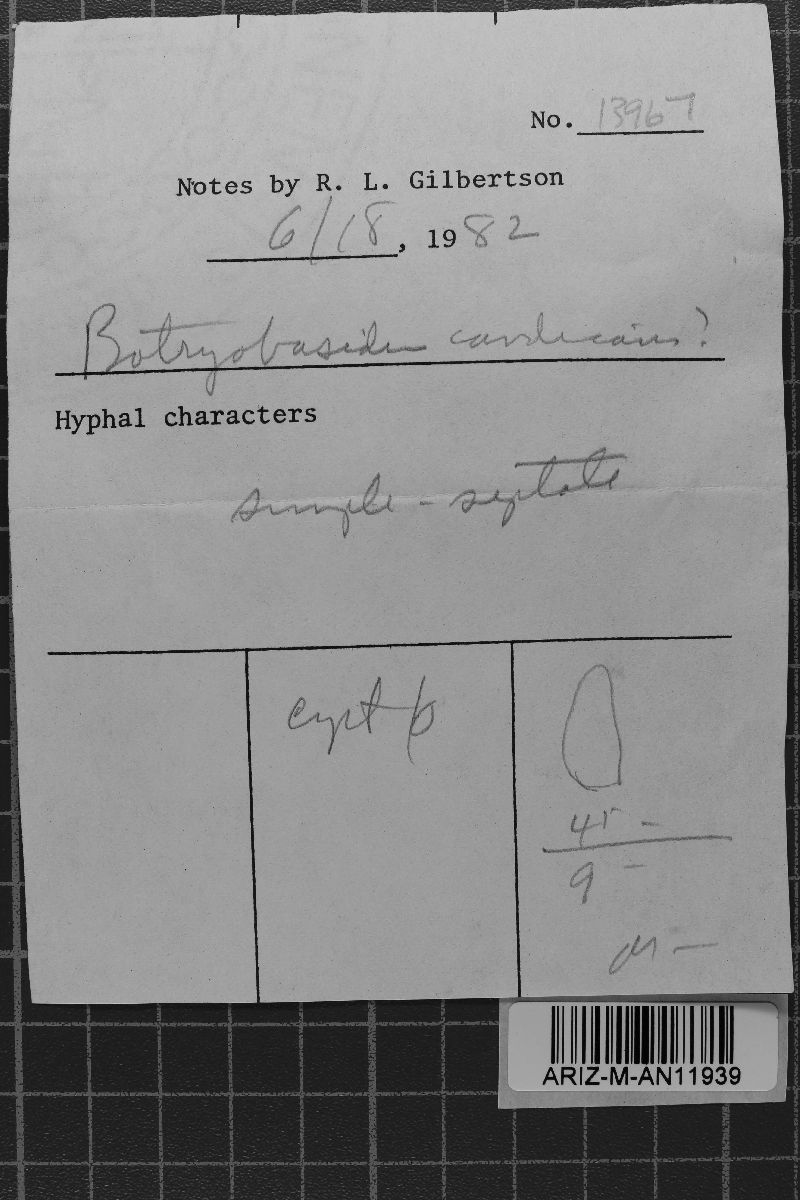 No. 13967
Notes by R. L. Gilbertson
6/18, 1982
Botryobasidium candicans?
Hyphal characters
simple - septate
cyst
45 -
9 -
M -
ARIZ-M-AN11939